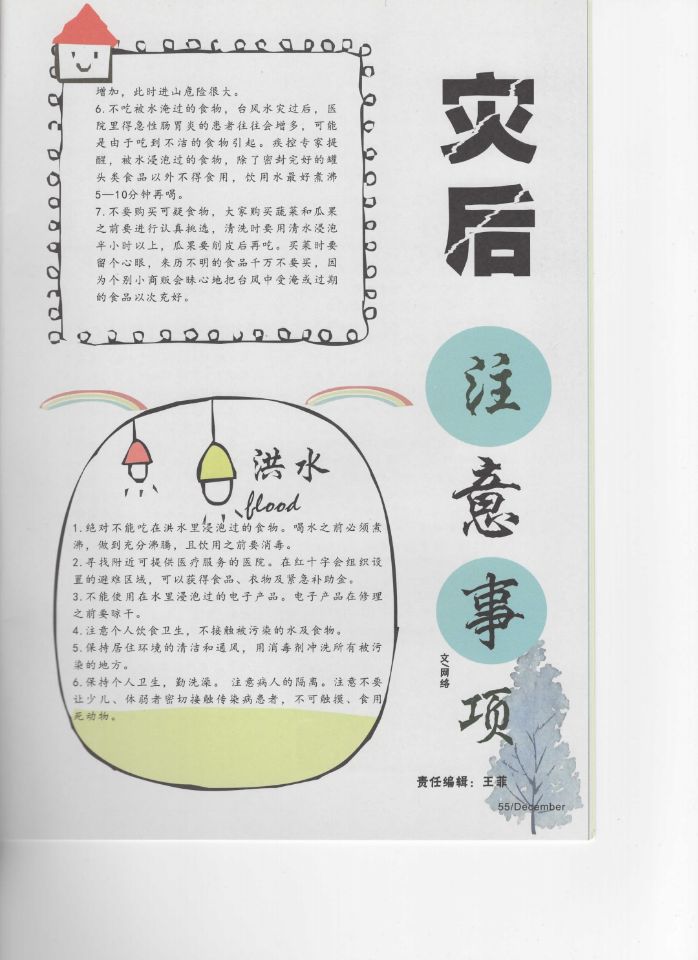 灾后
注意事项
文/网络
增加，此时进山危险很大。
6.不吃被水淹过的食物，台风水灾过后，医
院里得急性肠胃炎的患者往往会增多，可能
是由于吃到不洁的食物引起。疾控专家提
醒，被水浸泡过的食物，除了密封完好的罐
头类食品以外不得食用，饮用水最好煮沸
5—10分钟再喝。
7.不要购买可疑食物，大家购买蔬菜和瓜果
之前要进行认真挑选，清洗时要用清水浸泡
半小时以上，瓜果要削皮后再吃。买菜时要
留个心眼，来历不明的食品千万不要买，因
为个别小商贩会昧心地把台风中受淹或过期
的食品以次充好。
洪水
flood
1.绝对不能吃在洪水里浸泡过的食物。喝水之前必须煮
沸，做到充分沸腾，且饮用之前要消毒。
2.寻找附近可提供医疗服务的医院。在红十字会组织设
置的避难区域，可以获得食品、衣物及紧急补助金。
3.不能使用在水里浸泡过的电子产品。电子产品在修理
之前要晾干。
4.注意个人饮食卫生，不接触被污染的水及食物。
5.保持居住环境的清洁和通风，用消毒剂冲洗所有被污
染的地方。
6.保持个人卫生，勤洗澡。 注意病人的隔离。注意不要
让少儿、体弱者密切接触传染病患者，不可触摸、食用
死动物。
责任编辑：王菲
55/December